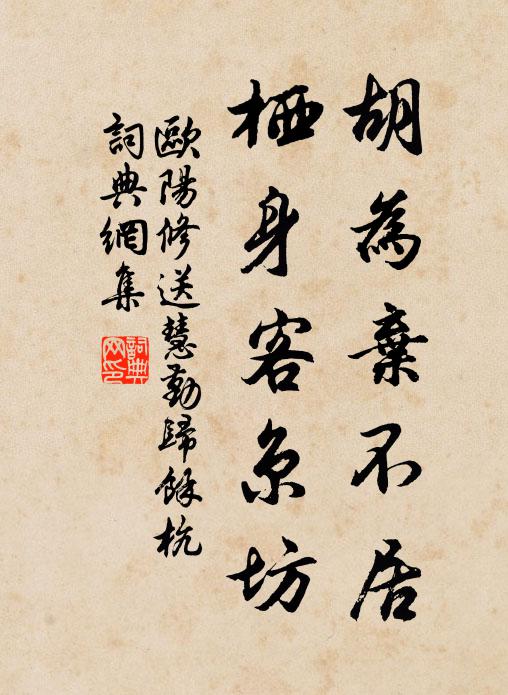 胡為棄不居
栖身客京坊
歐陽修送慧勤歸餘杭
詞典網集
詞典
网印